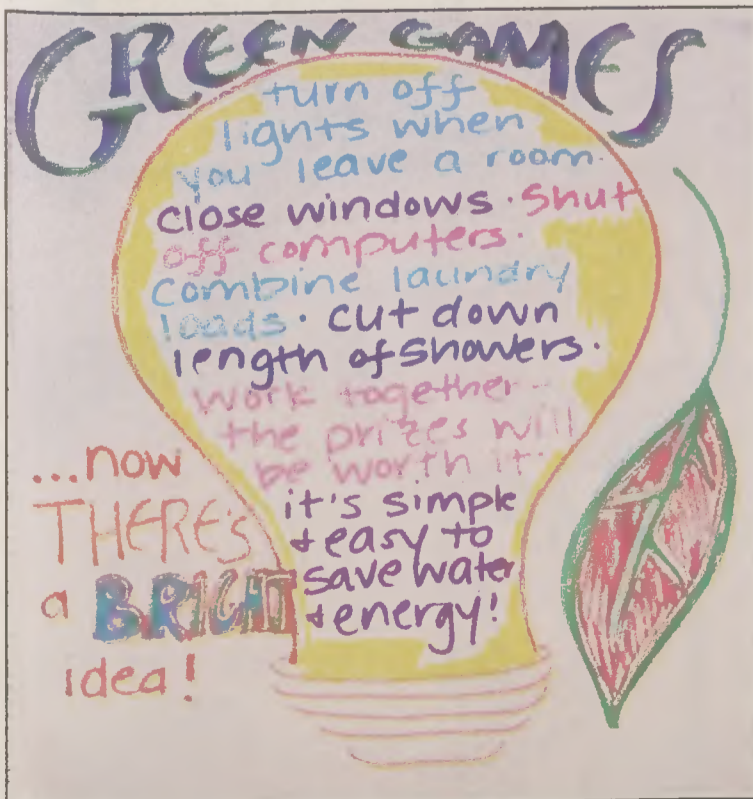 GREEN GAMES
turn off
lights when
you leave a room.
close windows. Shut
off computers.
combine laundry
loads. cut down
length of showers.
work together--
the prizes will
be worth it.
it's simple
+ easy to
save water
+ energy!
...now
THERE'S
a BRIGHT
idea!